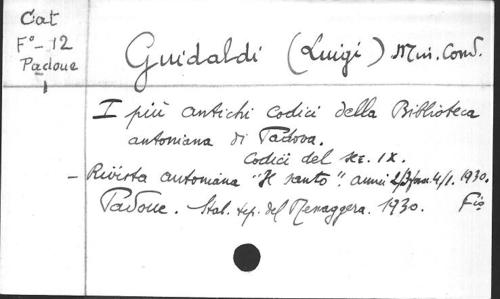 Cat
F°-12
Padoue
1
Guidaldi (Luigi) Min. Conv.
I più antichi codici della Biblioteca
antoniana di Padova.
Codici del sec. IX.
- Rivista antoniana "Il santo". anni 2/3 fasc. 4/1. 1930.
Padoue. Stab. tip. del Messaggero. 1930.